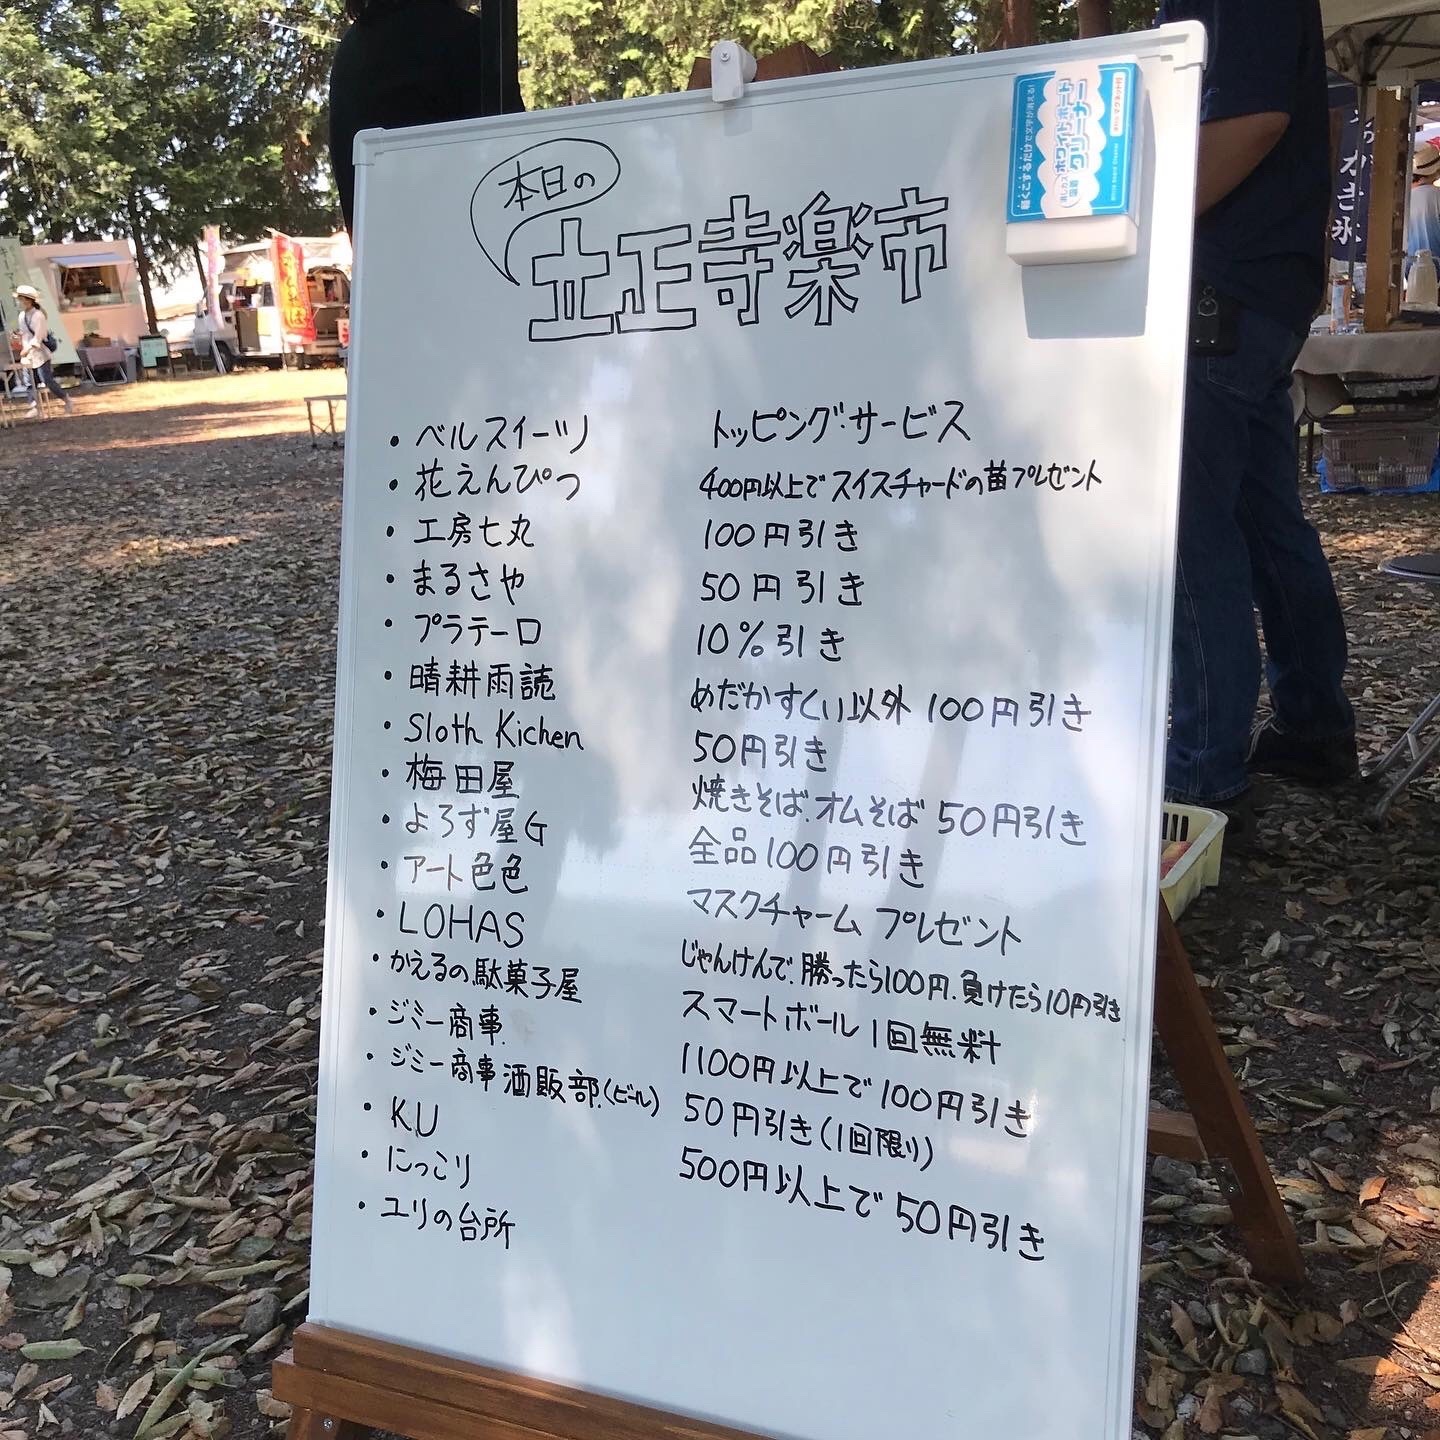 本日の
立正寺楽市
・ベルスイーツ トッピング・サービス
・花えんぴつ 400円以上でスイスチャードの苗プレゼント
・工房七丸 100円引き
・まるさや 50円引き
・プラテーロ 10%引き
・晴耕雨読 めだかすくい以外 100円引き
・Sloth Kichen 50円引き
・梅田屋 焼きそば.オムそば 50円引き
・よろず屋G 全品100円引き
・アート色色 マスクチャーム プレゼント
・LOHAS じゃんけんで、勝ったら100円、負けたら10円引き
・かえるの駄菓子屋 スマートボール1回無料
・ジミー商事 1100円以上で100円引き
・ジミー商事 酒販部(ビール) 50円引き(1回限り)
・K.U 500円以上で 50円引き
・にっこり
・ユリの台所
軽くこするだけで文字が消える!
ホワイトボード
クリーナー
消しカス吸着
White Board Cleaner
かき氷